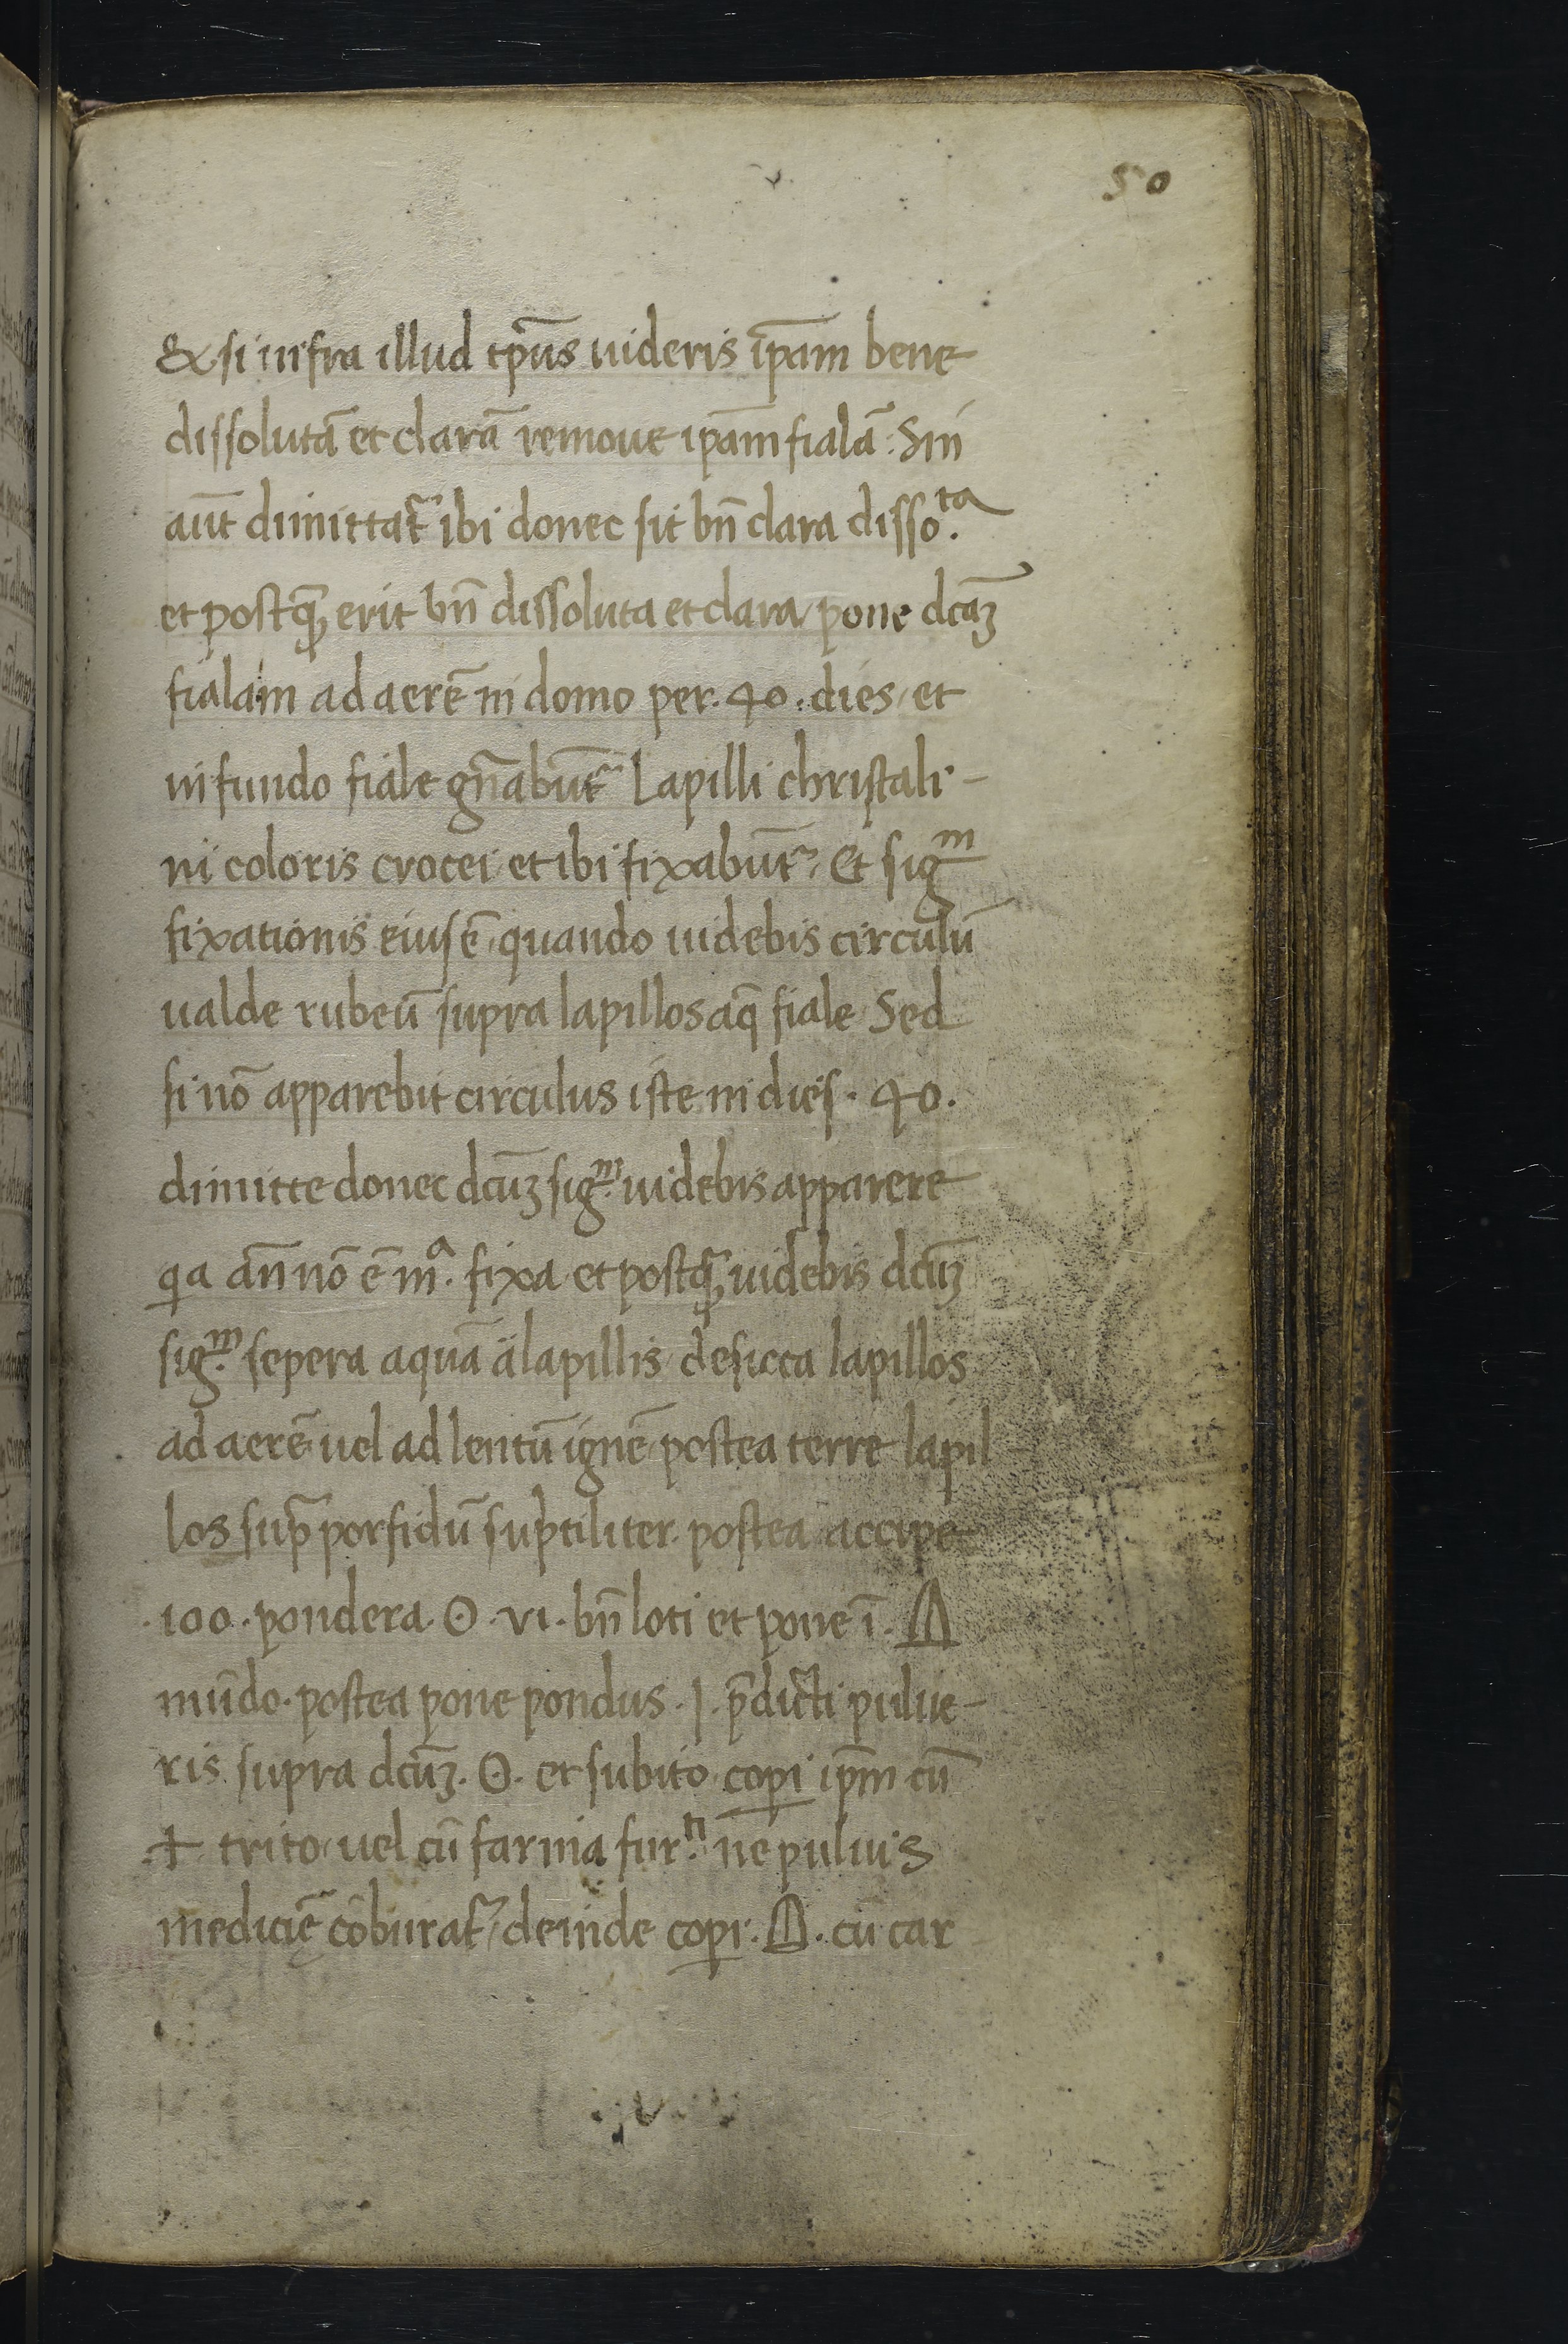 50
Et si infra illud tp̄us uideris ip̄am bene
dissolutā et clarā remoue ipām fialā: Sin
aūt dimittat͛ ibi donec sit bn̄ clara disso.ᵗᵃ
et postq̄ꝫ erit bn̄ dissoluta et clara / pone dcāꝫ
fialam ad aerē in domo per. 40. dies / et
in fundo fiale gn̄abūt͛ Lapilli christali-
ni coloris crocei et ibi fixabūt͛, Et sigᵐ
fixationis eius ē quando uidebis circulū
ualde rubeū supra lapillos aq̄ fiale Sed
si nō apparebit circulus iste in dies. 40.
dimitte donec dcūꝫ sig.ᵐ uidebis apparere
qa an̄ nō ē mᵃ. fixa et postq̄ꝫ uidebis dcūꝫ
sig.ᵐ sepera aquā a lapillis / desicca lapillos
ad aerē uel ad lentū ignē postea terre lapil
los sup̄ porfidū suptiliter. postea accipe
.100. pondera ☉. vi. bn̄ loti et pone ī.
mūdo. postea pone pondus. j. p̄dicti pulue-
ris supra dcūꝫ. ☉. et subito copi ip̄m cū
.+ trito uel cū farina fur.ᵗⁱ ne puluis
mediciē cōburat͛ / deinde copi. cū car